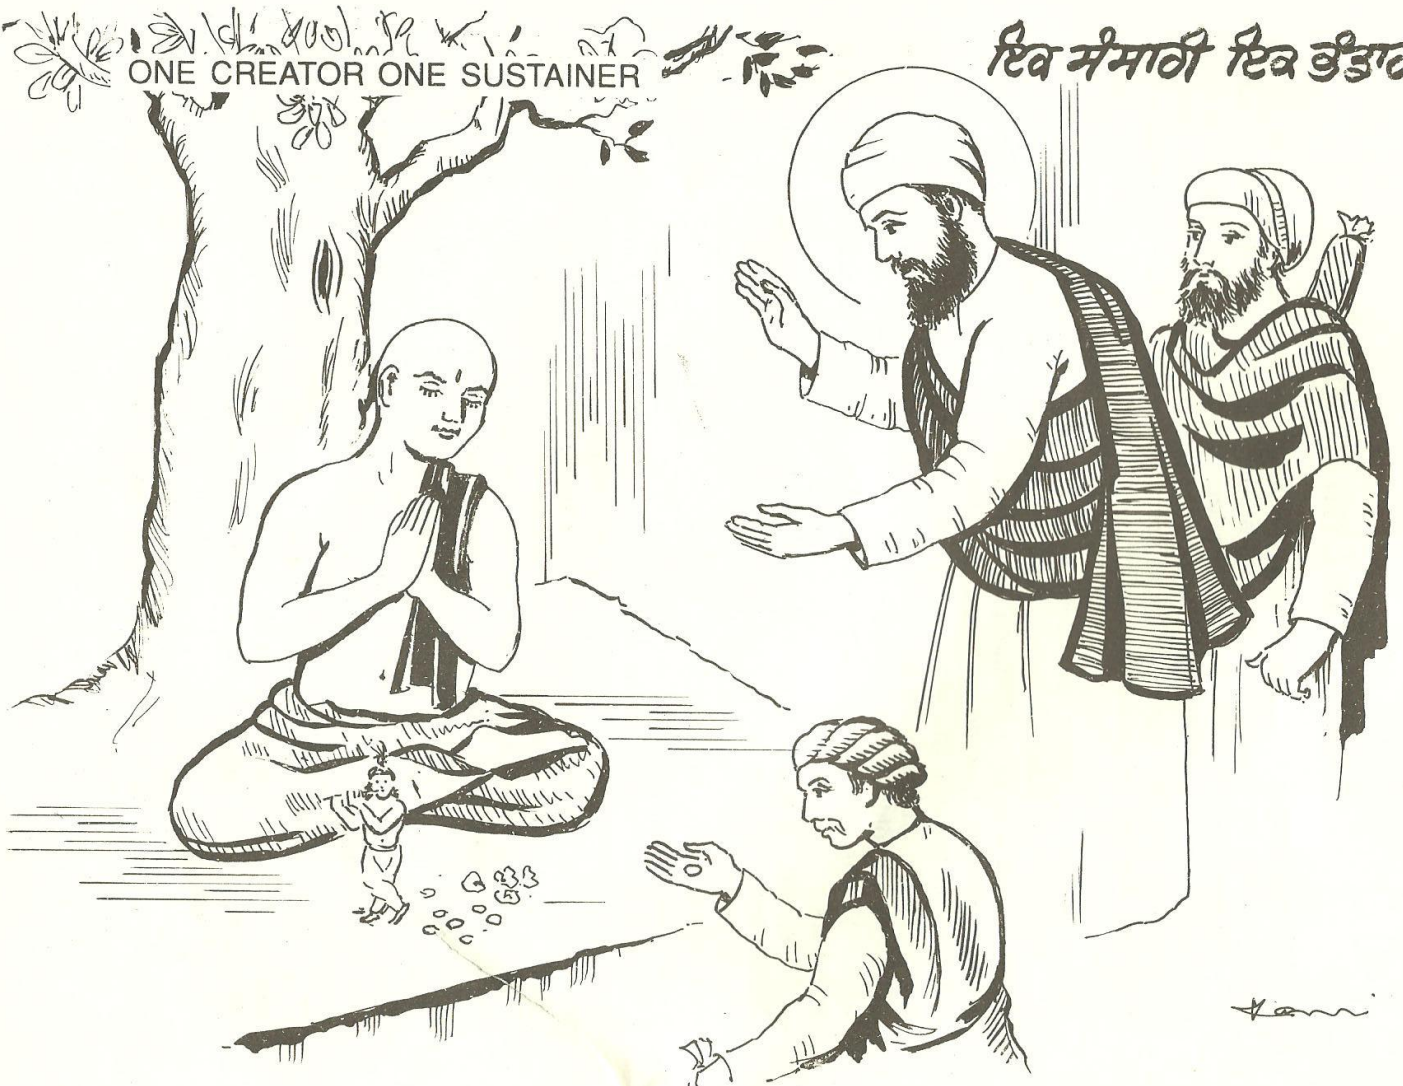 ONE CREATOR ONE SUSTAINER
ਇਕ ਸੰਸਾਰੀ ਇਕ